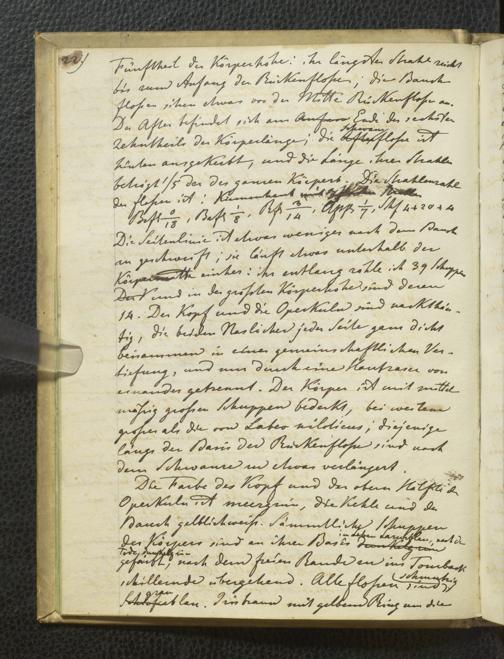 22)
Fünftheil der Körperhöhe: ihr längster Strahl reicht
bis zum Anfang der Rückenflosse; die Bauch
flossen sitzen etwas vor der Mitte Rückenflosse an.
Der After befindet sich am Ende des sechsten
Zehntheils der Körperlänge; die Schwanzflosse ist
hinten ausgekerbt, und die Länge ihrer Strahlen
beträgt 1/5 der des ganzen Körpers. Die Strahlenzahl
der flossen ist:
Brfl 0/18, Bafl 1/8, Rfl 3/14, Afl 1/7, Shfl 4+20+4
Die Seitenlinie ist etwas weniges nach dem Bauch
zu geschweift; sie läuft etwas unterhalb der
einher: ihr entlang zähle ich 39 Schuppen
und in der größten Körperhöhe sind deren
14. Der Kopf und die Operkuln sind nackthäu-
tig, die beiden Naslöcher jeder Seite ganz dicht
beisammen in einer gemeinschaftlichen Ver-
tiefung, und nur durch eine Hautfaser von
einander getrennt. Der Körper ist mit mittel
mäßig großen Schuppen bedeckt, bei weitem
größer als die von Labeo niloticus; diejenige
längs der Basis der Rückenflosse sind nach
dem Schwanze zu etwas verlängert.
Die Farbe des Kopf und der obern Hälfte der
Operkuln ist meergrün, die Kehle und der
Bauch gelblichweiß. Sämmtliche Schuppen
des Körpers sind an ihrer Basis
gefärbt, nach dem freien Rande zu ins Tomback
schillernde übergehend. Alle flossen sind schmutzig
blau. Iris braun mit gelbem Ring um die